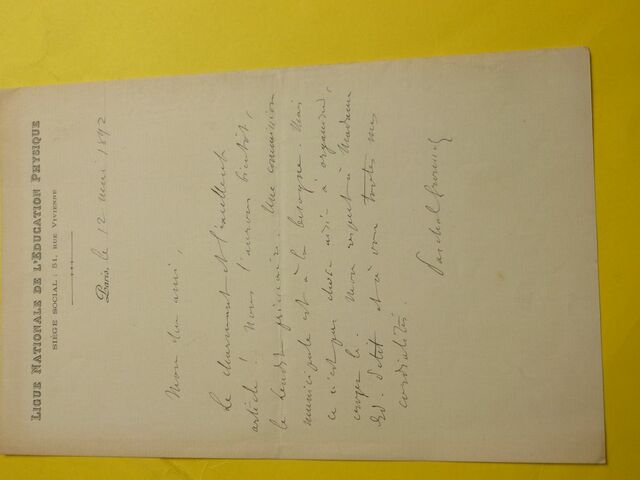 LIGUE NATIONALE DE L'ÉDUCATION PHYSIQUE
SIÈGE SOCIAL : 51, RUE VIVIENNE
Paris, le 12 mai 1892
Mon cher ami,
Le charmant et l'excellent
article ! Nous l'aurons bientôt,
le Lendit primaire. Une commission
municipale est à la besogne. Mais
ce n'est pas chose aisée à organiser,
croyez le. Mon respect à Madame
Ed. Petit et à vous toutes mes
cordialités.
Paschal Grousset